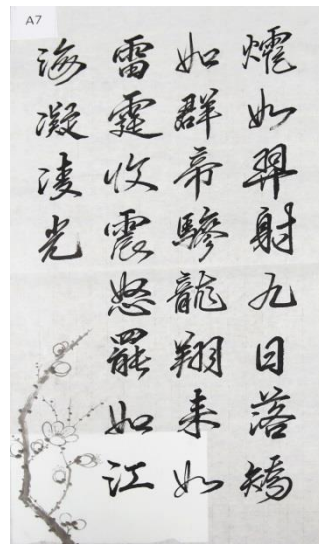 A7
㸌如羿射九日落矯
如群帝驂龍翔来如
雷霆收震怒罷如江
海凝凌光